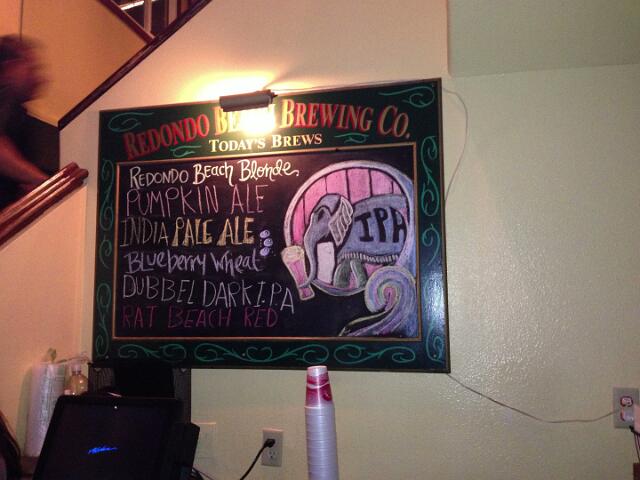 REDONDO BEACH BREWING CO.
TODAY'S BREWS
REDONDO BEACH BLONDE
PUMPKIN ALE
INDIA PALE ALE
BLUEBERRY WHEAT
DUBBEL DARK I.P.A
RAT BEACH RED
IPA